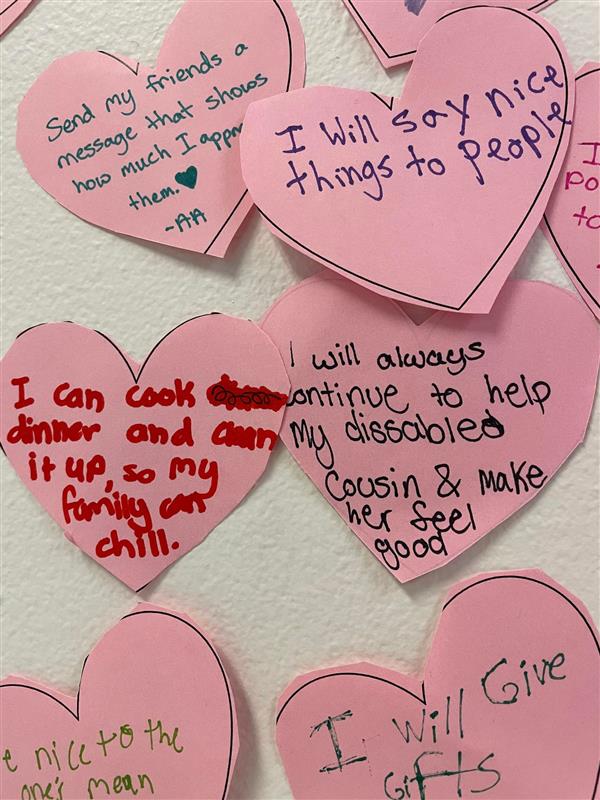 Send my friends a
message that shows
how much I
them.
-AA
I Will say nice
things to people
I
po
to
I can cook
dinner and clean
it up, so my
family can
chill.
I will always
continue to help
My dissabled
Cousin & make
her feel
good
nice to the
one's mean
I Will Give
Gifts